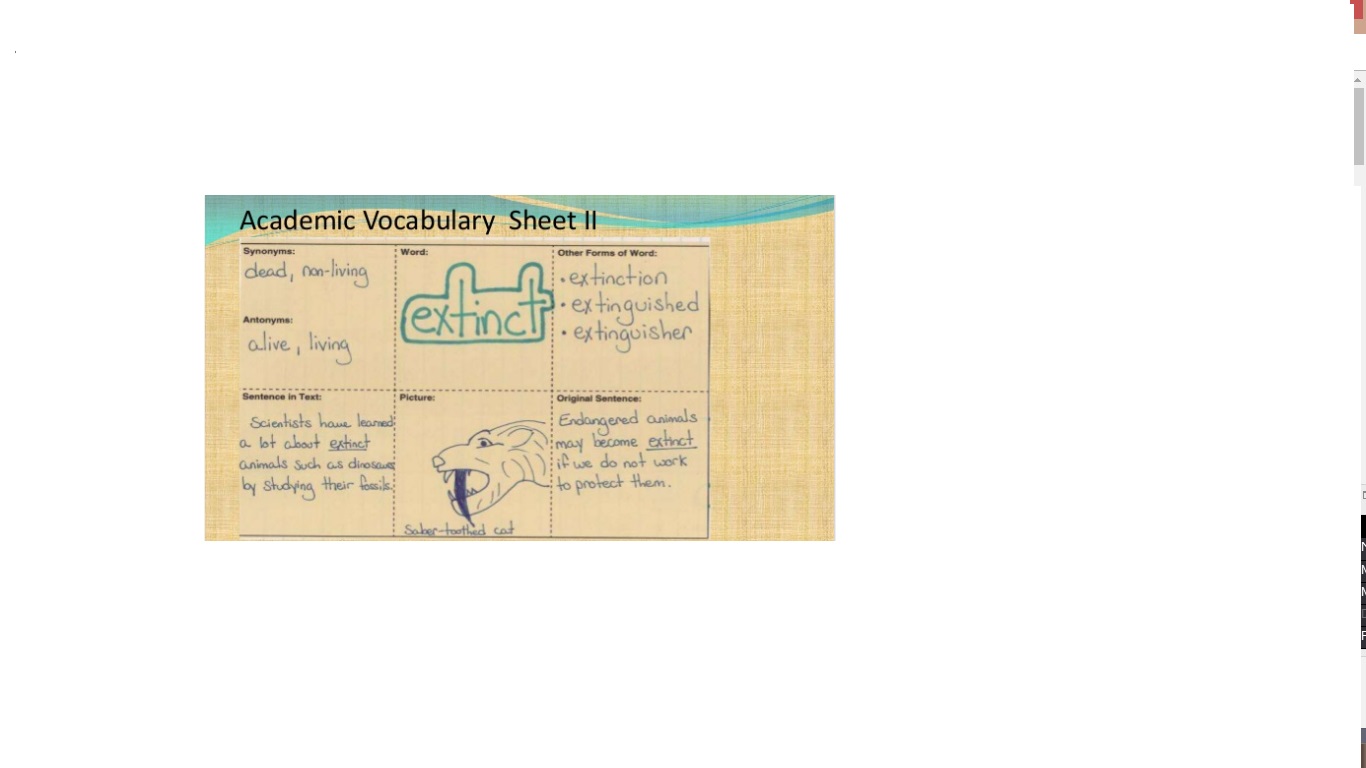 Academic Vocabulary Sheet II
Synonyms:
dead, non-living
Antonyms:
alive, living
Word:
extinct
Other Forms of Word:
• extinction
• extinguished
• extinguisher
Sentence in Text:
Scientists have learned
a lot about extinct
animals such as dinosaurs
by studying their fossils.
Picture:
Saber-toothed cat
Original Sentence:
Endangered animals
may become extinct
if we do not work
to protect them.